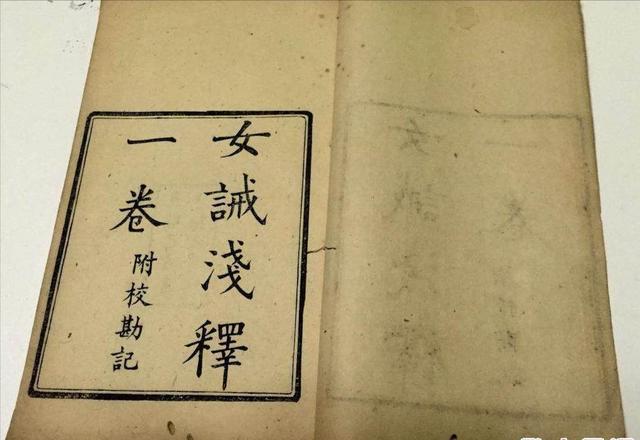 女誡淺釋
一卷
附校勘記